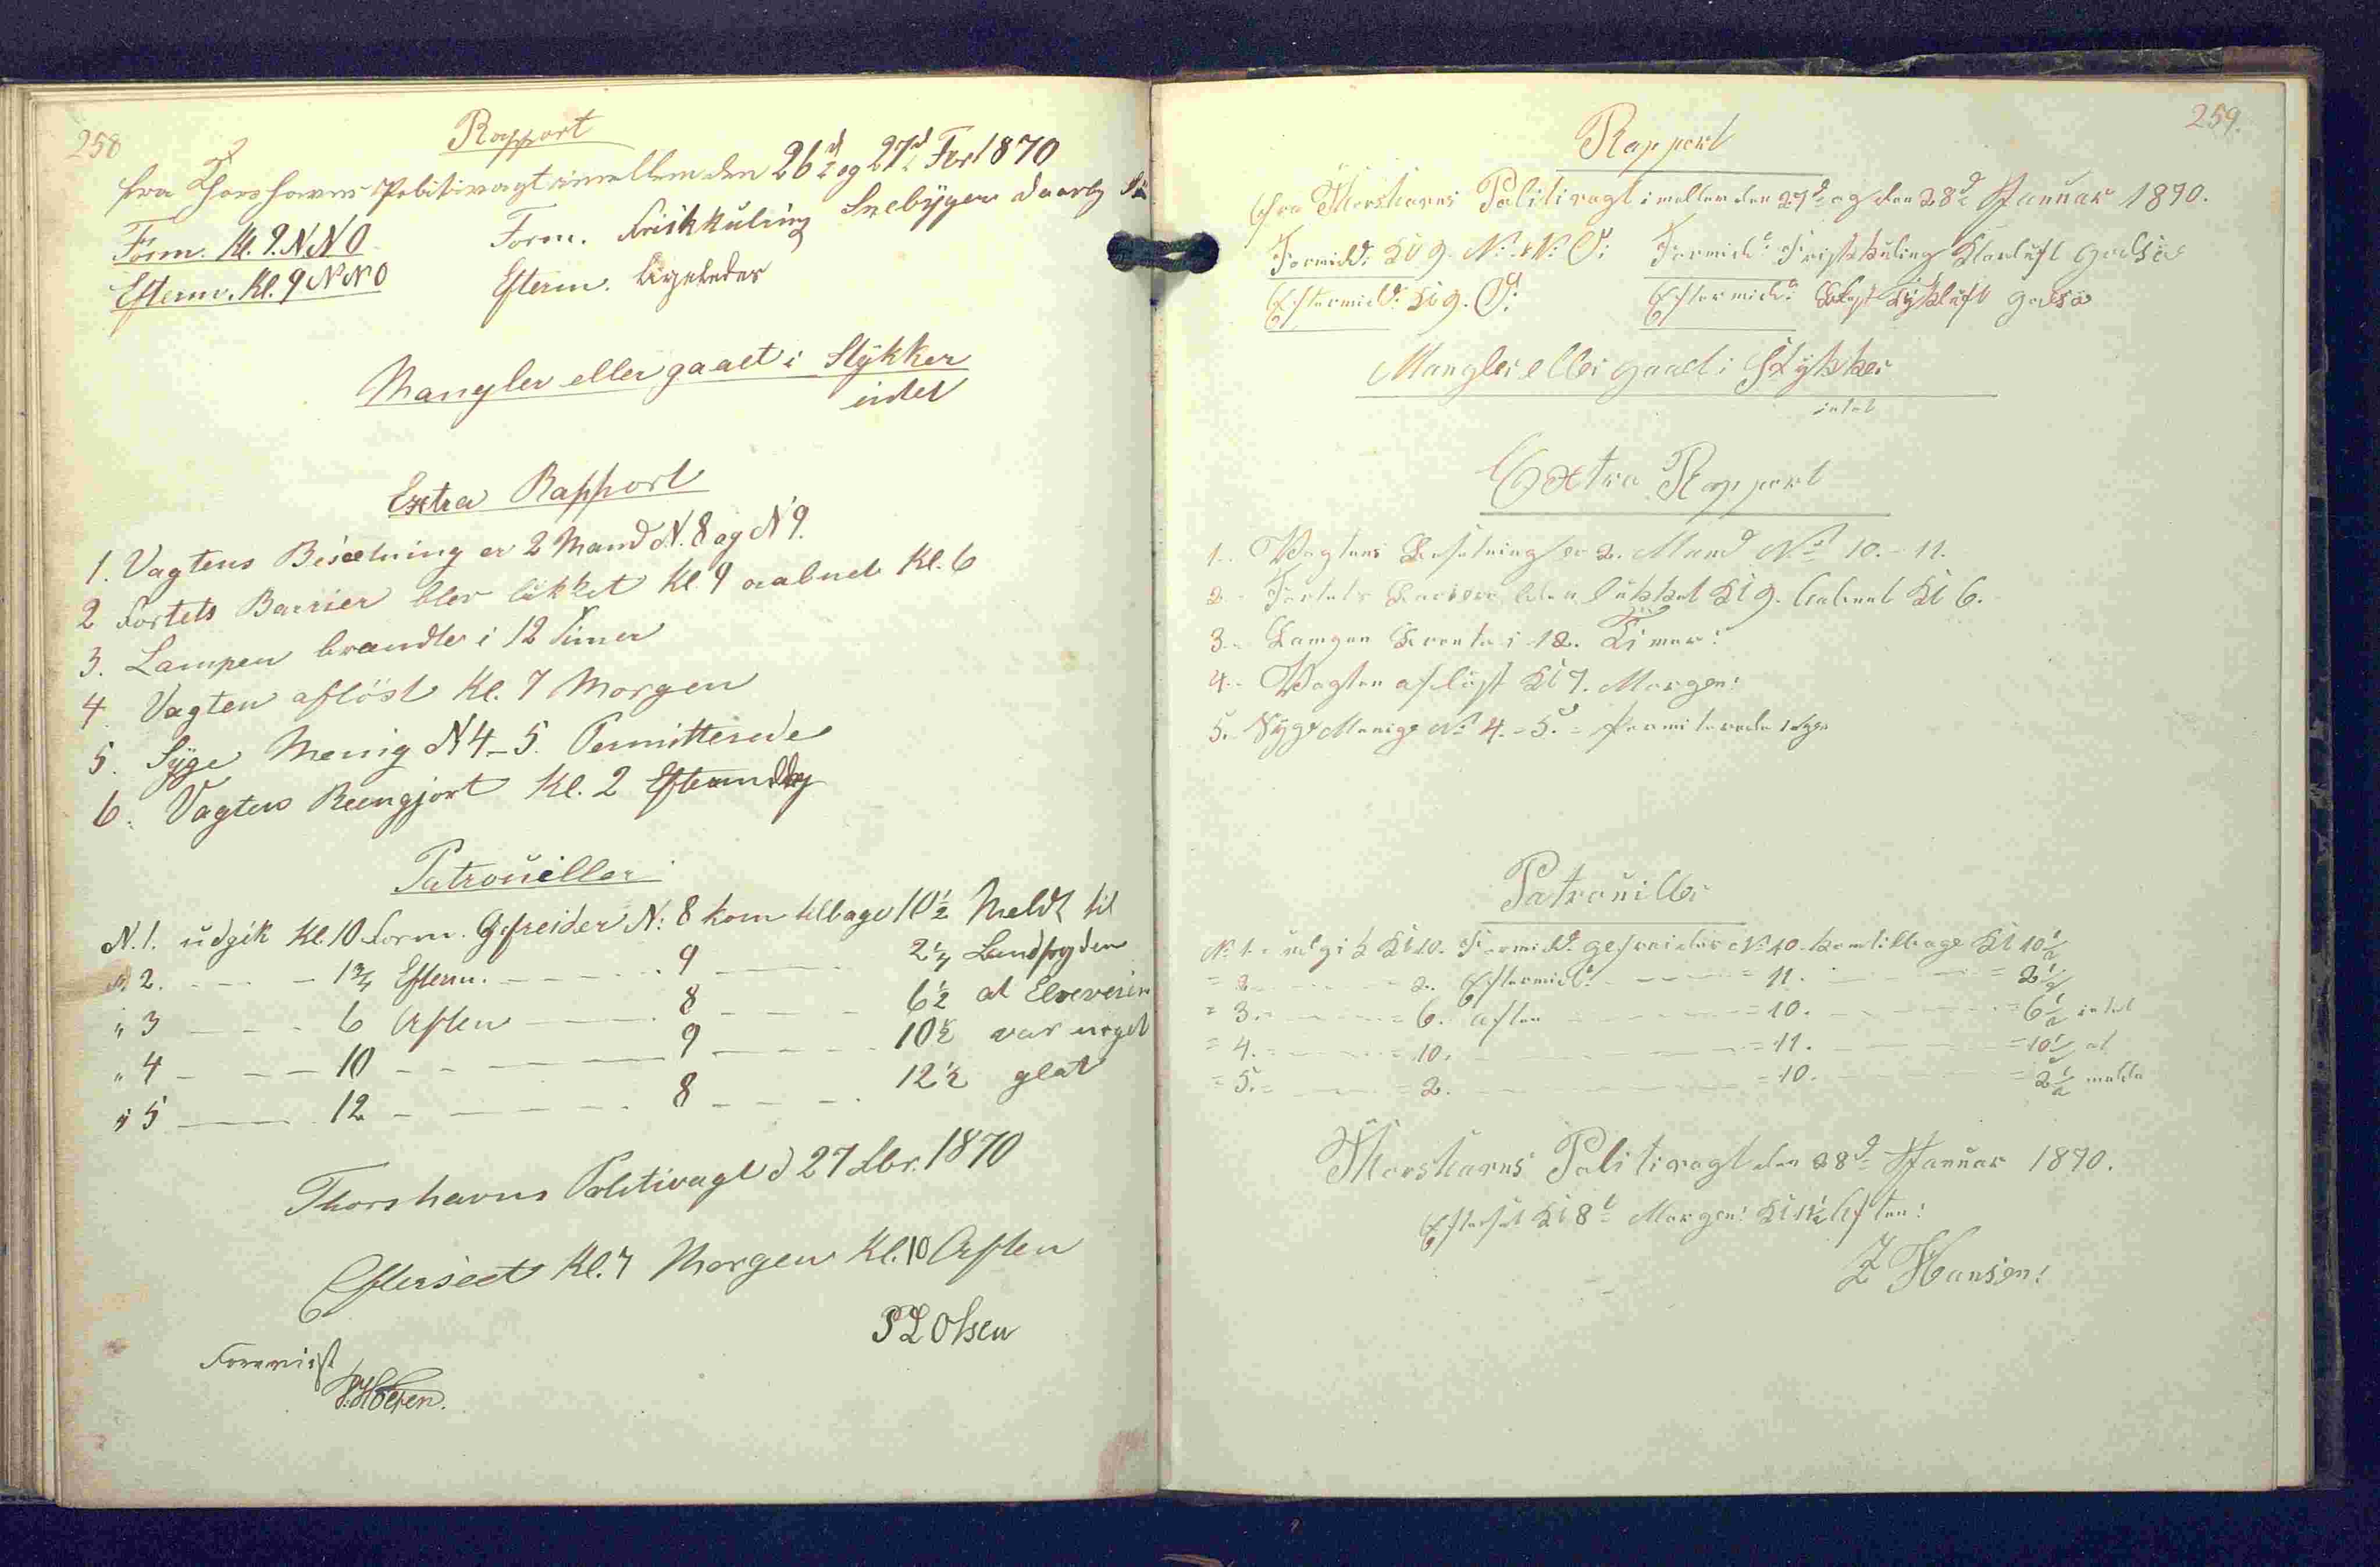 258
Rapport
fra Thorshavns Politivagt imellem den 26d og 27d Fbr 1870
Form. Kl. 9. N.N.O Form. Friskkuling Snebyger daarlig Sö
Efterm. Kl. 9 N N O Efterm. ligeledes
Mangler eller gaaet i Stykker
intet
Extra Rapport
1. Vagtens Besætning er 2 Mand N. 8 og N 9.
2 Fortets Barrier blev lükket Kl. 9 aabnet Kl. 6
3. Lampen brændte i 12 Timer
4. Vagten aflöst Kl. 7 Morgen
5. Syge Menig N 4_5. Permitterede
6. Vagten Reengjort Kl. 2
Patrouiller
N. 1. udgik Kl. 10 Form. Gefreider N: 8 kom tilbage 10½ Meldt til
" 2. - - - 1¾ Efterm. - - - 9 - - - 2¼ Landfogden
" 3 - - - 6 Aften - - - 8 - - - 6½ at Elvevеrin
" 4 - - - 10 - - - 9 - - - 10½ var meget
" 5 - - - 12 - - - 8 - - - 12½ glat
Thorshavns Politivagt d 27 Fbr. 1870
Efterseet Kl. 7 Morgen Kl. 10 Aften
P L Olsen
Foreviist
259.
Rapport
fra Thorshavns Politivagt imellem den 27d og den 28d Januar 1870.
Formidd: Kl 9. N: N: O: Formidd: Friskkuling Klarluft godsö
Eftermidd: Kl 9. O: Eftermidd: Lükluft godsö
Mangler eller gaaet i Stykker
intet
Extra Rapport
1. Vagtens Besetning er 2. Mand No 10. - 11.
2. Fortets Bariere blev lukket Kl 9. Aabnet Kl 6.
3. Lampen Brente i 12. Timer:
4. Vagten aflöst Kl 7. Morgen:
5. Syge Menige No 4. - 5. = Permiterede
Patrouiller
No 1. udgik Kl 10. Formidd. gefreider No 10 kom tilbage Kl 10½
= 2. - - - 2. Eftermidd: - - - = 11. - - - = 2½
= 3. - - - = 6. aften - - - = 10. - - - = 6½ intet
= 4. = - - - = 10. - - - = 11. - - - = 10½ at
= 5. = - - - = 2. - - - = 10. - - - = 2½ melde
Thorshavns Politivagt den 28d Januar 1870.
Efterset Kl 8 Morgen: Kl 11½ Aften:
Z Hansen: